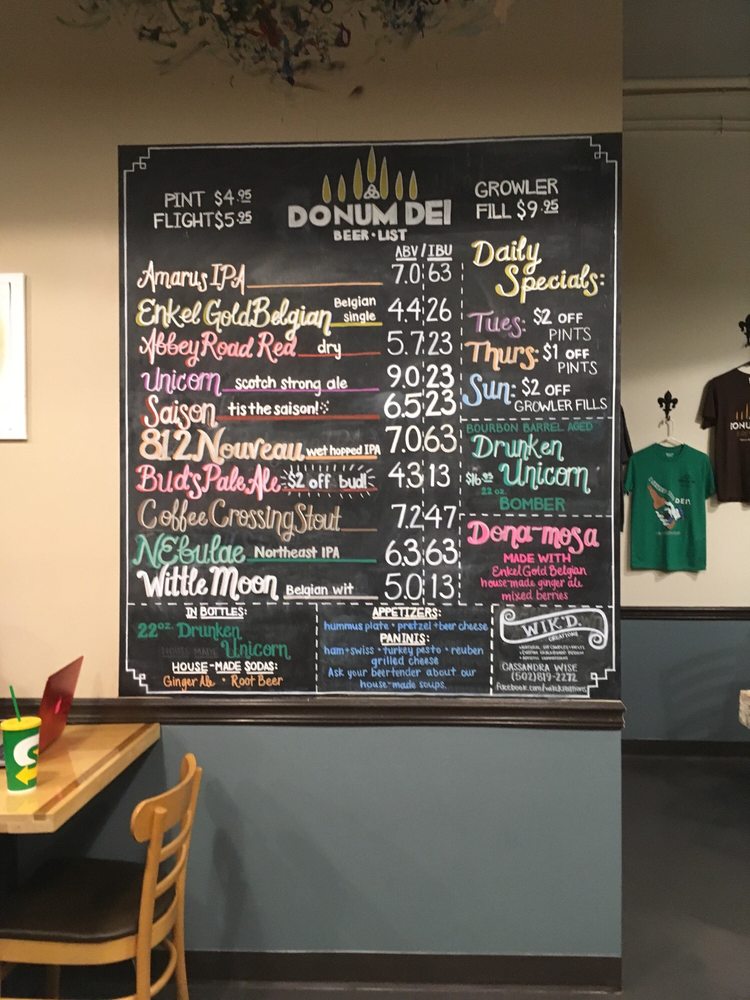 PINT $4.95
FLIGHT $5.95
DONUM DEI
BEER • LIST
GROWLER
FILL $9.95
ABV / IBU
Amarus IPA 7.0 63
Enkel Gold Belgian Belgian single 4.4 26
Abbey Road Red dry 5.7 23
Unicorn scotch strong ale 9.0 23
Saison tis the saison! 6.5 23
812 Nouveau wet hopped IPA 7.0 63
Bud's Pale Ale $2 off bud! 4.3 13
Coffee Crossing Stout 7.2 47
NEbulae Northeast IPA 6.3 63
Wittle Moon Belgian wit 5.0 13
Daily
Specials:
Tues: $2 OFF
PINTS
Thurs: $1 OFF
PINTS
Sun: $2 OFF
GROWLER FILLS
BOURBON BARREL AGED
Drunken
$16.95 Unicorn
22 oz.
BOMBER
Dona-mosa
MADE WITH
Enkel Gold Belgian
house-made ginger ale
mixed berries
IN BOTTLES:
22oz. Drunken
Unicorn
HOUSE-MADE SODAS:
Ginger Ale • Root Beer
APPETIZERS:
hummus plate • pretzel + beer cheese
PANINIS:
ham + swiss • turkey pesto • reuben
grilled cheese
Ask your beertender about our
house-made soups.
WIK'D.
CREATIONS
CASSANDRA WISE
(502)819-2272